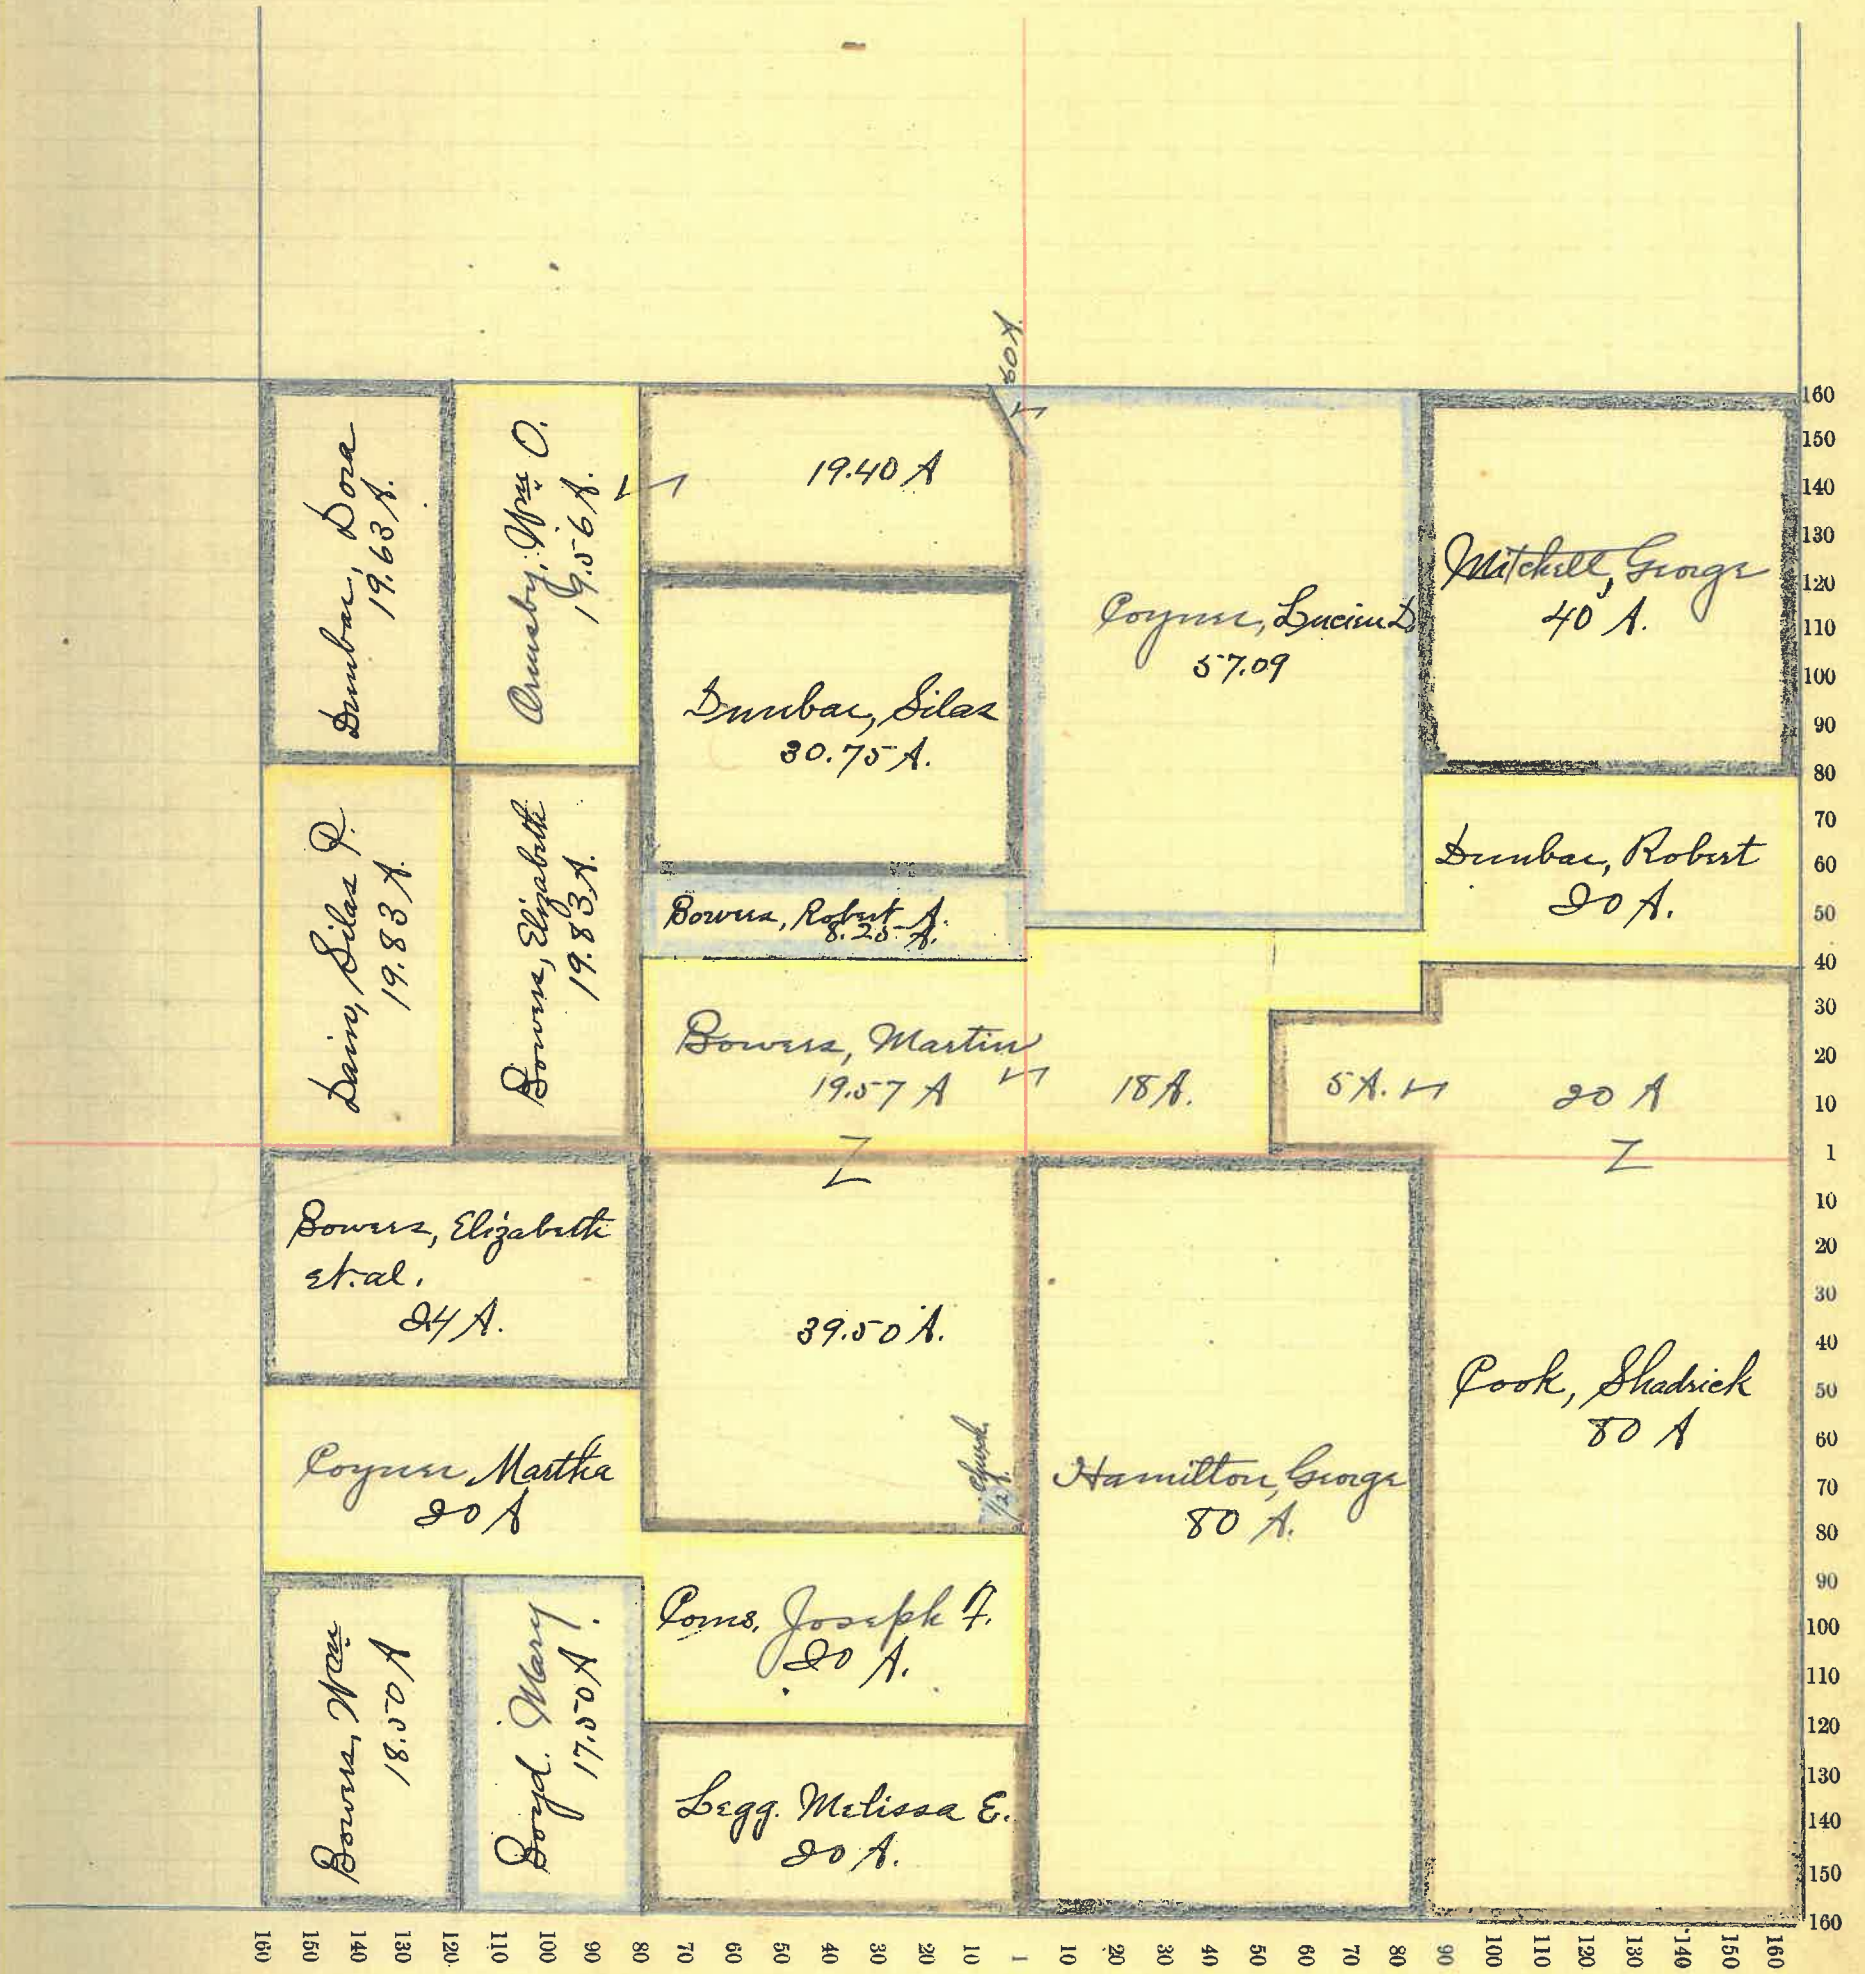 .60 A.
Dunbar, Dora
19.63 A.
Ormsby, Wm O.
19.56 A.
19.40 A
Coyner, Lucien D.
57.09
Mitchell, George
40 A.
Dunbar, Silas
30.75 A.
Bowers, Robert A.
8.25 A.
Dunbar, Robert
20 A.
Silas P.
19.83 A.
Bowers, Elizabeth
19.83 A.
Bowers, Martin
19.57 A
18 A.
5 A.
20 A
Bowers, Elizabeth
et. al.
24 A.
39.50 A.
Church
1/2 A.
Coyner Martha
20 A
Hamilton, George
80 A.
Cook, Shadrick
80 A
Bowers, Wm
18.50 A
Boyd. Mary
17.50 A.
Joseph F.
20 A.
Legg. Melissa E.
20 A.
160
150
140
130
120
110
100
90
80
70
60
50
40
30
20
10
1
10
20
30
40
50
60
70
80
90
100
110
120
130
140
150
160
160 150 140 130 120 110 100 90 80 70 60 50 40 30 20 10 1 10 20 30 40 50 60 70 80 90 100 110 120 130 140 150 160